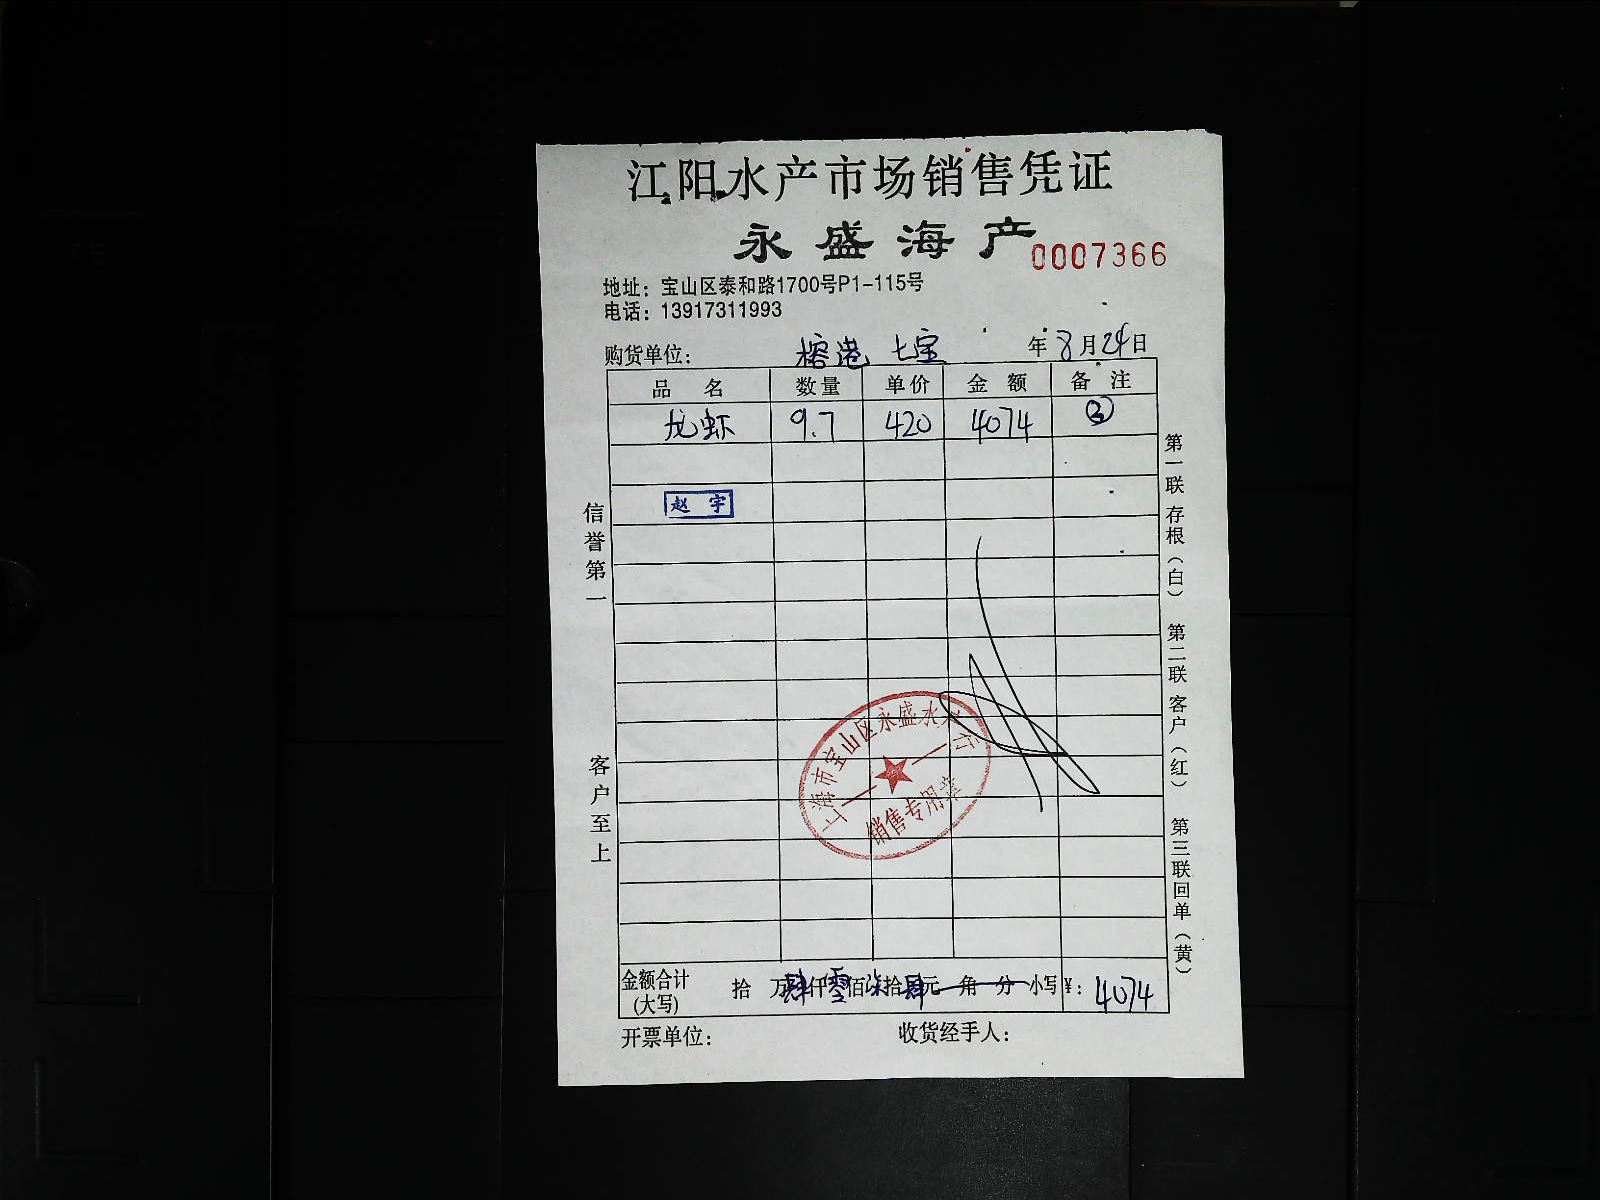 江阳水产市场销售凭证
永盛海产 0007366
地址：宝山区泰和路1700号P1-115号
电话：13917311993
购货单位： 榕港 七宝 年8月24日
品名 数量 单价 金额 备注
龙虾 9.7 420 4074 ②
赵宇
信誉第一
客户至上
第一联 存根（白） 第二联 客户（红） 第三联 回单（黄）
上海市宝山区永盛水产行
销售专用章
金额合计 拾 万肆仟零佰柒拾肆元 角 分 小写¥：4074
(大写)
开票单位： 收货经手人：